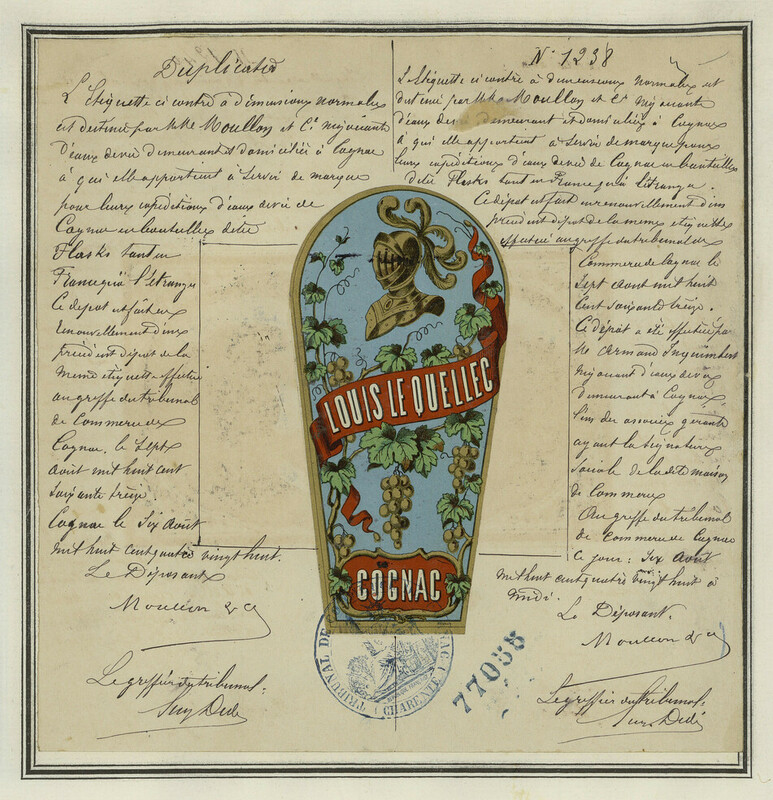 Duplicata
L'Etiquette ci contre à dimensions normales
est destinée par MM. Moullon et Cie négociants
d'eaux de vie demeurant et domiciliés à Cognac
à qui elle appartient à servir de marque
pour leurs expéditions d'eaux de vie de
Cognac en bouteilles dites
Flasks tant en
France qu'à l'étranger
Ce dépôt est fait en
renouvellement d'un
précédent dépôt de la
même étiquette effectué
au greffe du tribunal
de Commerce de
Cognac. le sept
août mil huit cent
soixante treize.
Cognac le Six Août
mil huit cent quatre vingt huit.
Le Déposant
Moullon & Cie
Le greffier du tribunal.
N° 1238
L'Etiquette ci contre à dimensions normales est
destinée par MM. Moullon et Cie négociants
d'eaux de vie demeurant et domiciliés à Cognac
à qui elle appartient à servir de marque pour
leurs expéditions d'eaux de vie de Cognac en bouteilles
dites Flasks tant en France qu'à l'étranger.
Ce dépôt est fait en renouvellement d'un
précédent dépôt de la même étiquette
effectué au greffe du tribunal de
Commerce de Cognac le
sept août mil huit
cent soixante treize.
Ce dépôt a été effectué par
Mr Armand
négociant d'eaux de vie
demeurant à Cognac
l'un des associés gérants
ayant la signature
sociale de la dite maison
de Commerce
Au greffe du tribunal
de Commerce de Cognac
ce jour: Six Août
mil huit cent quatre vingt huit à
midi.
Le Déposant.
Moullon & Cie
Le greffier du tribunal.
LOUIS LE QUELLEC
COGNAC
TRIBUNAL DE
CHARENTE
77055